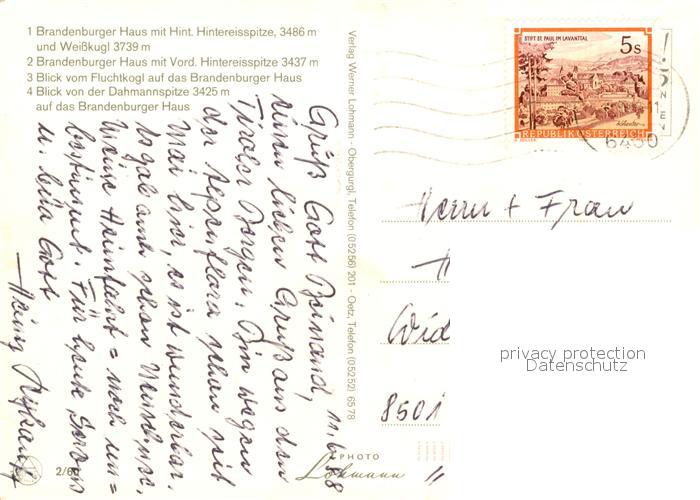 1 Brandenburger Haus mit Hint. Hintereisspitze, 3486 m
und Weißkugl 3739 m
2 Brandenburger Haus mit Vord. Hintereisspitze 3437 m
3 Blick vom Fluchtkogl auf das Brandenburger Haus
4 Blick von der Dahmannspitze 3425 m
auf das Brandenburger Haus
Verlag Werner Lohmann - Obergurgl, Telefon (05256) 201 - Oetz, Telefon (05252) 6578
STIFT ST. PAUL IM LAVANTTAL
5s
REPUBLIK ÖSTERREICH
6450
11.6.88
Grüß Gott
einen lieben Gruß aus den
Tiroler Bergen. Bin wegen
der Alpenflora schon seit
Mai hier, es ist wunderbar.
Es gab auch schon
Meine Heimfahrt = noch un=
bestimmt. Für heute Servus
u. bfüa Gott
Herrn + Frau
H
Wid
8501
privacy protection
Datenschutz
PHOTO
Lohmann
2/6